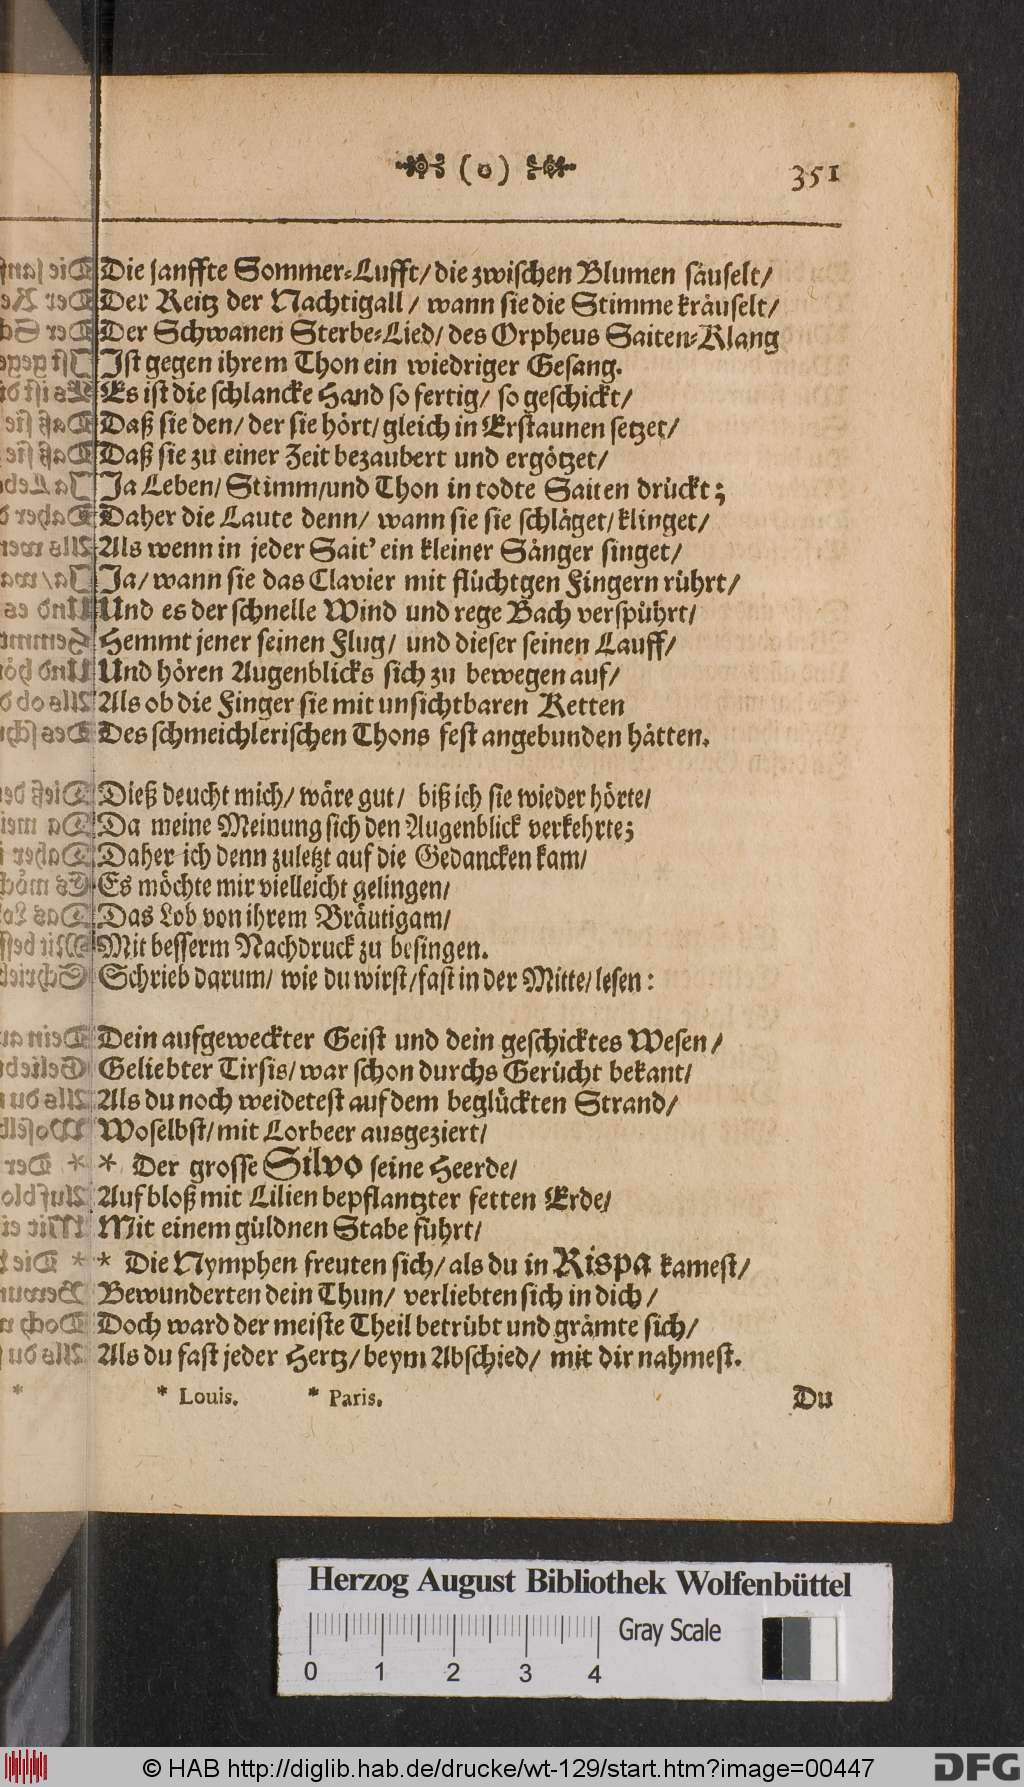 (o) 351
Die sanffte Sommer-Lufft/ die zwischen Blumen säuselt/
Der Reitz der Nachtigall / wann sie die Stimme kräuselt/
Der Schwanen Sterbe-Lied/ des Orpheus Saiten-Klang
Ist gegen ihrem Thon ein wiedriger Gesang.
Es ist die schlancke Hand so fertig/ so geschickt/
Daß sie den/ der sie hört/ gleich in Erstaunen setzet/
Daß sie zu einer Zeit bezaubert und ergötzet/
Ja Leben/ Stimm/und Thon in todte Saiten drückt;
Daher die Laute denn/ wann sie sie schläget/ klinget/
Als wenn in jeder Sait' ein kleiner Sänger singet/
Ja/ wann sie das Clavier mit flüchtgen Fingern rührt/
Und es der schnelle Wind und rege Bach verspührt/
Hemmt jener seinen Flug/ und dieser seinen Lauff/
Und hören Augenblicks sich zu bewegen auf/
Als ob die Finger sie mit unsichtbaren Ketten
Des schmeichlerischen Thons fest angebunden hätten.
Dieß deucht mich/ wäre gut/ biß ich sie wieder hörte/
Da meine Meinung sich den Augenblick verkehrte;
Daher ich denn zuletzt auf die Gedancken kam/
Es möchte mir vielleicht gelingen/
Das Lob von ihrem Bräutigam/
Mit besserm Nachdruck zu besingen.
Schrieb darum/ wie du wirst/ fast in der Mitte/ lesen:
Dein aufgeweckter Geist und dein geschicktes Wesen/
Geliebter Tirsis/ war schon durchs Gerücht bekant/
Als du noch weidetest auf dem beglückten Strand/
Woselbst/ mit Lorbeer ausgeziert/
* Der grosse Silvo seine Heerde/
Auf bloß mit Lilien bepflantzter fetten Erde/
Mit einem güldnen Stabe führt/
* Die Nymphen freuten sich/ als du in Rispa kamest/
Bewunderten dein Thun/ verliebten sich in dich/
Doch ward der meiste Theil betrübt und grämte sich/
Als du fast jeder Hertz/ beym Abschied/ mit dir nahmest.
* Louis. * Paris. Du
Herzog August Bibliothek Wolfenbüttel
Gray Scale
0 1 2 3 4
© HAB http://diglib.hab.de/drucke/wt-129/start.htm?image=00447
DFG